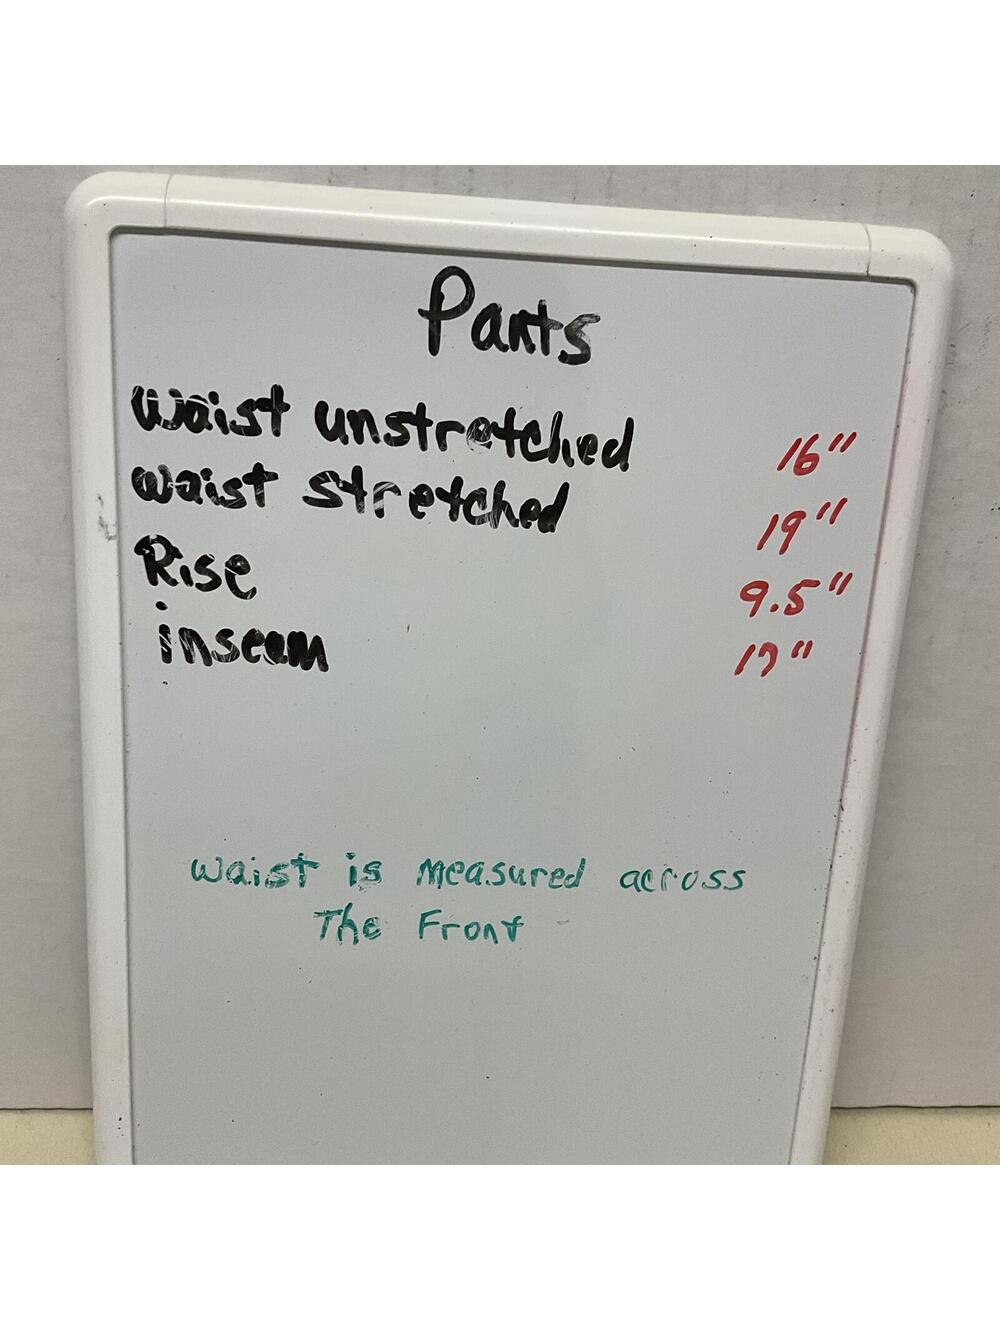 Pants
waist unstretched 16"
waist stretched 19"
Rise 9.5"
inseam 17"
waist is measured across
The Front